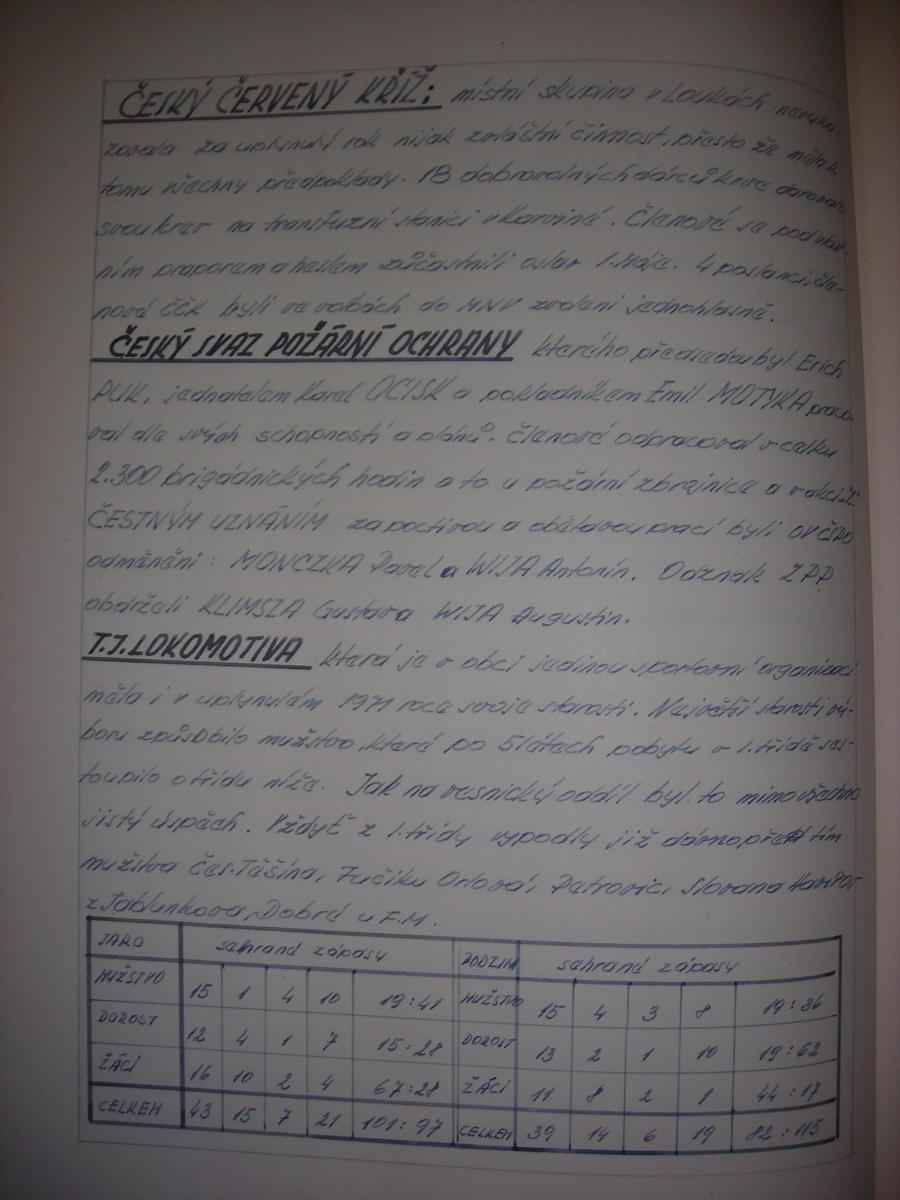 ČESKÝ ČERVENÝ KŘÍŽ: místní skupina v Loukách nevyka-
zovala za uplynulý rok nijak zvláštní činnost, přesto že měla k
tomu všechny předpoklady. 18 dobrovolných dárců krve darovalo
svou krev na transfuzní stanici v Karviné. Členové se pod vlast-
ním praporem a heslem zúčastnili oslav 1. Máje. 4 poslanci, čle-
nové ČČK byli ve volbách do MNV zvoleni jednohlasně.
ČESKÝ SVAZ POŽÁRNÍ OCHRANY kterého předsedou byl Erich
PUK, jednatelem Karel OCISK a pokladníkem Emil MOTYKA praco-
val dle svých schopností a plánů. Členové odpracoval v celku
2.300 brigádnických hodin a to u požární zbrojnice a v akci "Z".
ČESTNÝM UZNÁNÍM za poctivou a obětavou prací byli OV ČSPO
odměněni: MONCZKA Pavel a WIJA Antonín. Odznak ZPP
obdrželi KLIMSZA Gustav a WIJA Augustin.
T.J. LOKOMOTIVA která je v obci jedinou sportovní organizací
měla i v uplynulém 1971 roce svoje starosti. Největší starosti vý-
boru způsobilo mužstvo, které po 5 létech pobytu v 1. třídě ses-
toupilo o třídu níže. Jak na vesnický oddíl byl to mimo všechno
jistý úspěch. Vždyť z 1. třídy vypadly již dávno před tím
mužstva Čes. Těšína, Fučíku Orlová, Petrovic, Slovana Havířov
z Jablunkova, Dobré u F.M.
JARO sehrané zápasy PODZIM sehrané zápasy
MUŽSTVO 15 1 4 10 19:41 MUŽSTVO 15 4 3 8 19:36
DOROST 12 4 1 7 15:28 DOROST 13 2 1 10 19:62
ŽÁCI 16 10 2 4 67:28 ŽÁCI 11 8 2 1 44:17
CELKEM 43 15 7 21 101:97 CELKEM 39 14 6 19 82:115